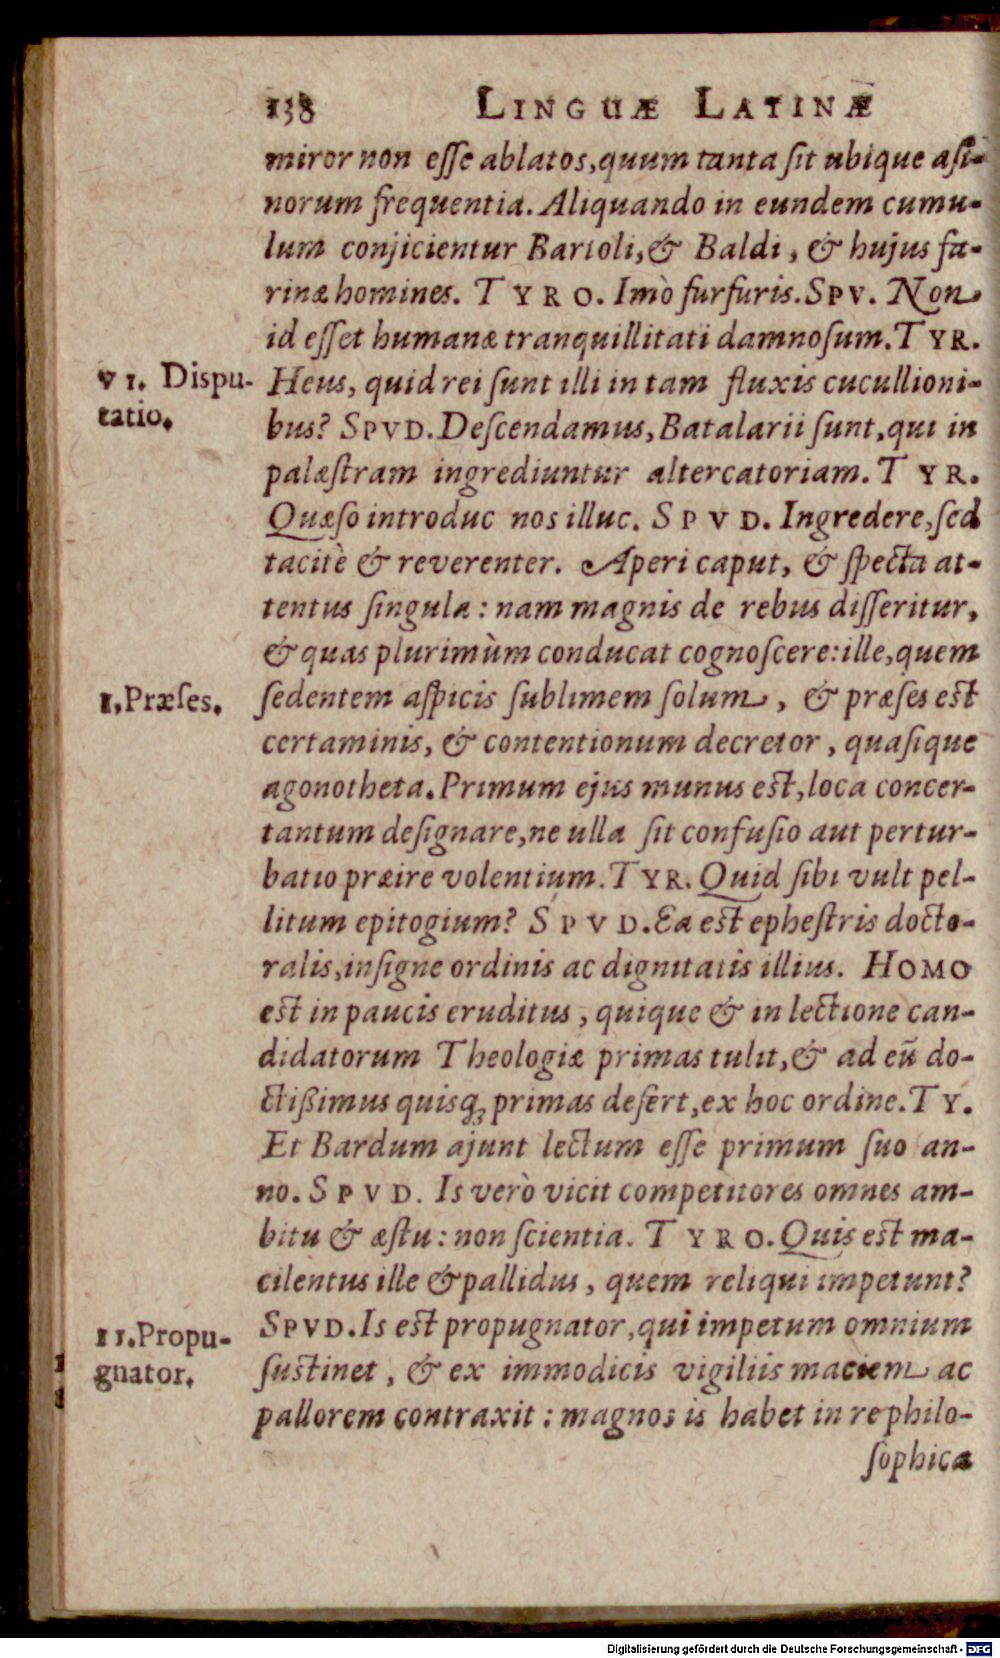 138 LINGUÆ LATINÆ
miror non eſſe ablatos, quum tanta ſit ubique aſi-
norum frequentia. Aliquando in eundem cumu-
lum conjicientur Bartoli, & Baldi, & hujus fa-
rinæ homines. TYRO. Imò furfuris. SPV. Non
id eſſet humanæ tranquillitati damnoſum. TYR.
VI. Diſpu- Heus, quid rei ſunt illi in tam fluxis cucullioni-
tatio. bus? SPVD. Deſcendamus, Batalarii ſunt, qui in
palæſtram ingrediuntur altercatoriam. TYR.
Quæſo introduc nos illuc. SPVD. Ingredere, ſed
tacitè & reverenter. Aperi caput, & ſpecta at-
tentus ſingula: nam magnis de rebus diſſeritur,
& quas plurimùm conducat cognoſcere: ille, quem
I. Præſes. ſedentem aſpicis ſublimem ſolum, & præſes eſt
certaminis, & contentionum decretor, quaſique
agonotheta. Primum ejus munus eſt, loca concer-
tantum deſignare, ne ulla ſit confuſio aut pertur-
batio præire volentium. TYR. Quid ſibi vult pel-
litum epitogium? SPVD. Ea eſt epheſtris docto-
ralis, inſigne ordinis ac dignitatis illius. HOMO
est in paucis eruditus, quique & in lectione can-
didatorum Theologiæ primas tulit, & ad eū do-
ctißimus quisq; primas defert, ex hoc ordine. TY.
Et Bardum ajunt lectum eſſe primum ſuo an-
no. SPVD. Is verò vicit competitores omnes am-
bitu & æſtu: non ſcientia. TYRO. Quis eſt ma-
cilentus ille & pallidus, quem reliqui impetunt?
II. Propu- SPVD. Is eſt propugnator, qui impetum omnium
gnator. ſuſtinet, & ex immodicis vigiliis maciem ac
pallorem contraxit: magnos is habet in re philo-
ſophica
Digitalisierung gefördert durch die Deutsche Forschungsgemeinschaft - DFG